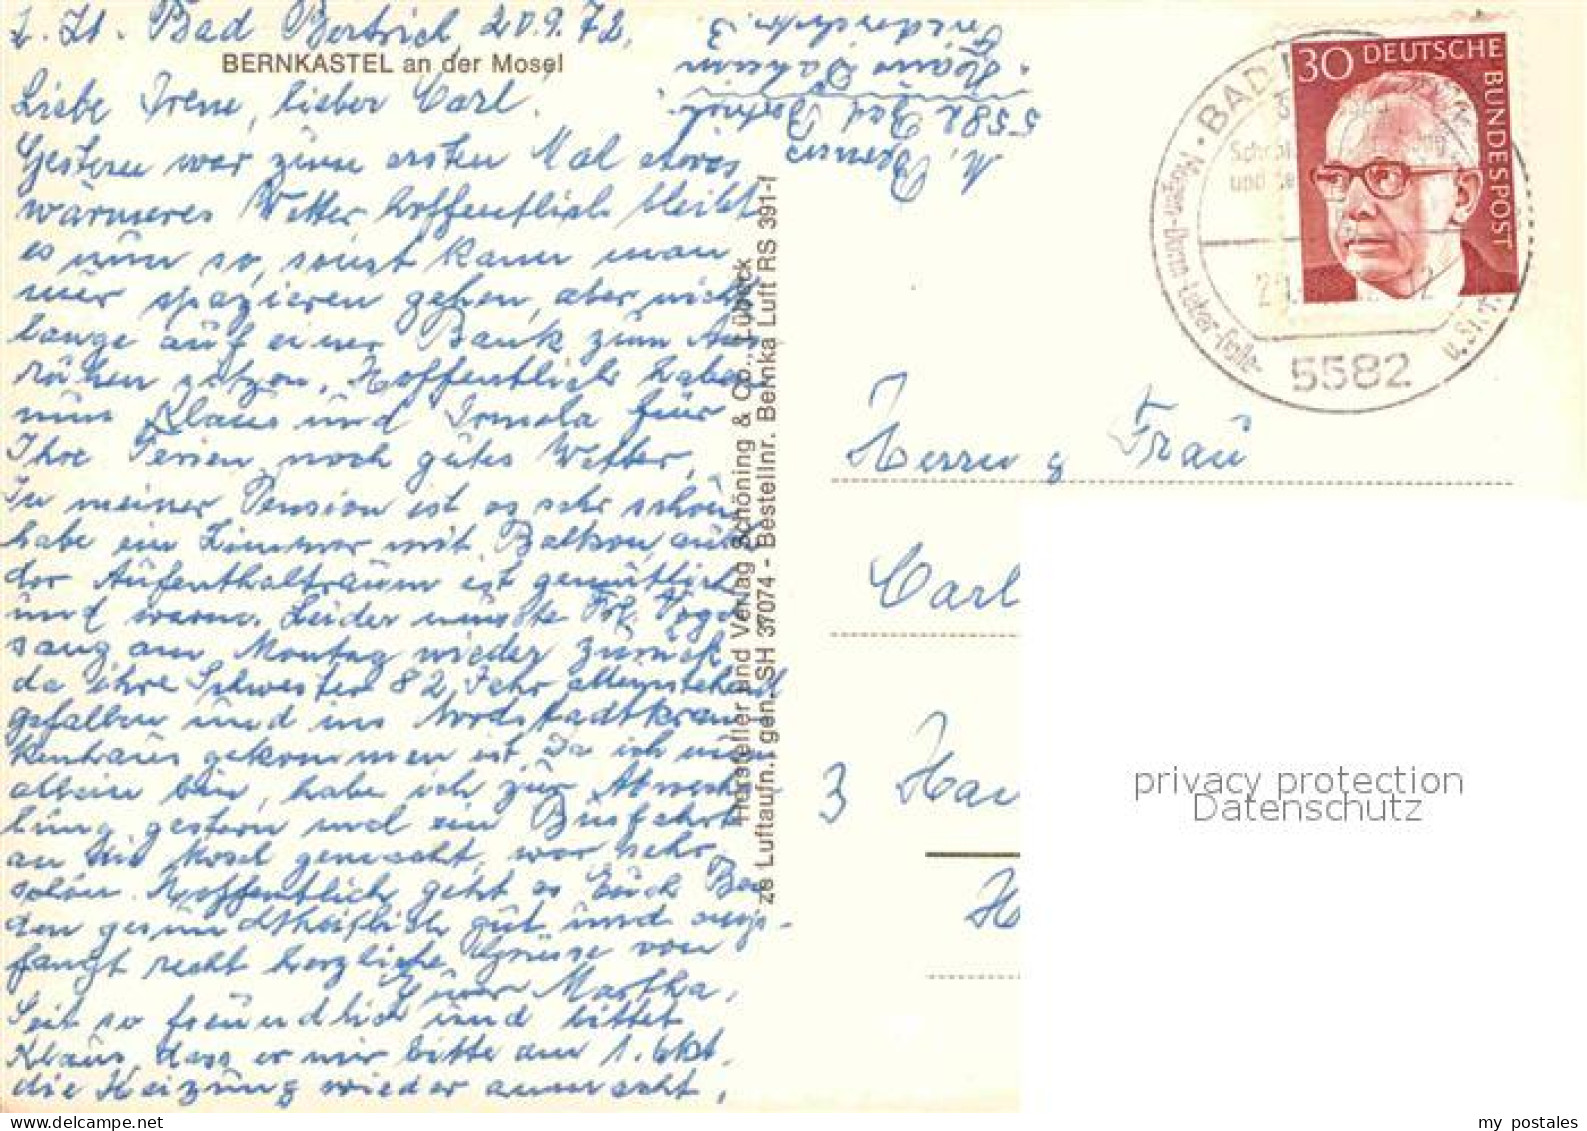 Z. Zt. Bad Bertrich 20.9.72.
BERNKASTEL an der Mosel
Liebe Irene, lieber Carl.
Gestern war zum ersten Mal etwas
wärmeres Wetter hoffentlich bleibt
es nun so, sonst kann man
nur spazieren gehen, aber nicht
lange auf einer Bank zum Aus
ruhen sitzen. Hoffentlich haben
nun Klaus und Irmela für
Ihre Ferien noch gutes Wetter.
In meiner Pension ist es sehr schön
habe ein Zimmer mit Balkon, auch
der Aufenthaltsraum ist gemütlich
und warm. Leider musste Frl. Vogel
sang am Montag wieder zurück,
da ihre Schwester 82 Jahr alleinstehend
gefallen und ins Nordstadtkran
kenhaus gekommen ist. Da ich nun
allein bin, habe ich zur Abwechs
lung gestern und ein Busfahrt
an die Mosel gemacht, war sehr
schön. Hoffentlich geht es Euch Bei
den gesundtheitlich gut und emp-
fangt recht herzliche Grüsse von
Eurer Martha.
Seit so freundlich und bittet
Klaus, dass er mir bitte am 1. Okt.
die Heizung wieder anmacht.
M.
Haus Daheim
5582 Bad Bertrich
Hersteller und Verlag Schöning & Co., Lübeck
ze Luftaufn.: gen. SH 37074 - Bestellnr. Bernka Luft RS 391-f
30 DEUTSCHE
BUNDESPOST
BAD
Magen-Darm-Leber-Galle-
5582
Herrn & Frau
Carl
3 Han
H
privacy protection
Datenschutz
my postales